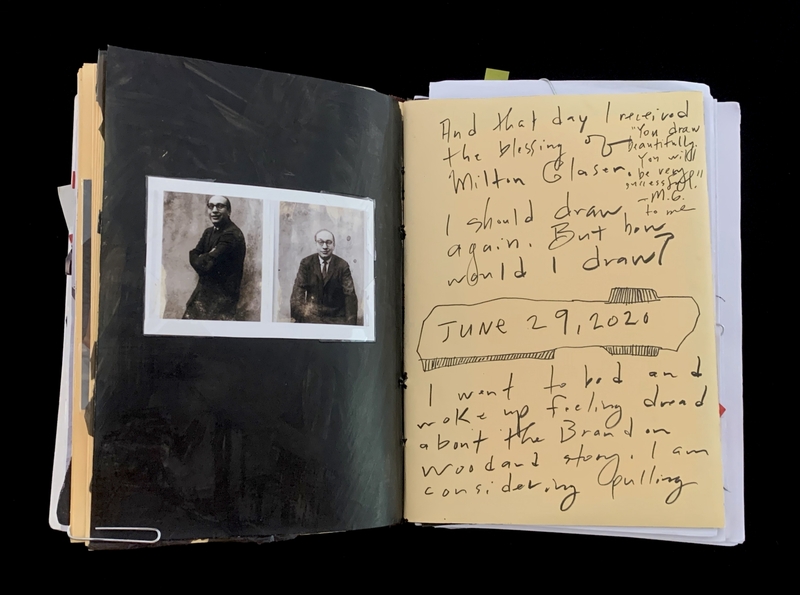 And that day I received
the blessing of
Milton Glaser.
"You draw
beautifully.
You will
be very
successful."
—M.G.
to me
I should draw
again. But how
would I draw?
JUNE 29, 2020
I went to bed and
woke up feeling dread
about the Brandon
Woodard story. I am
considering pulling